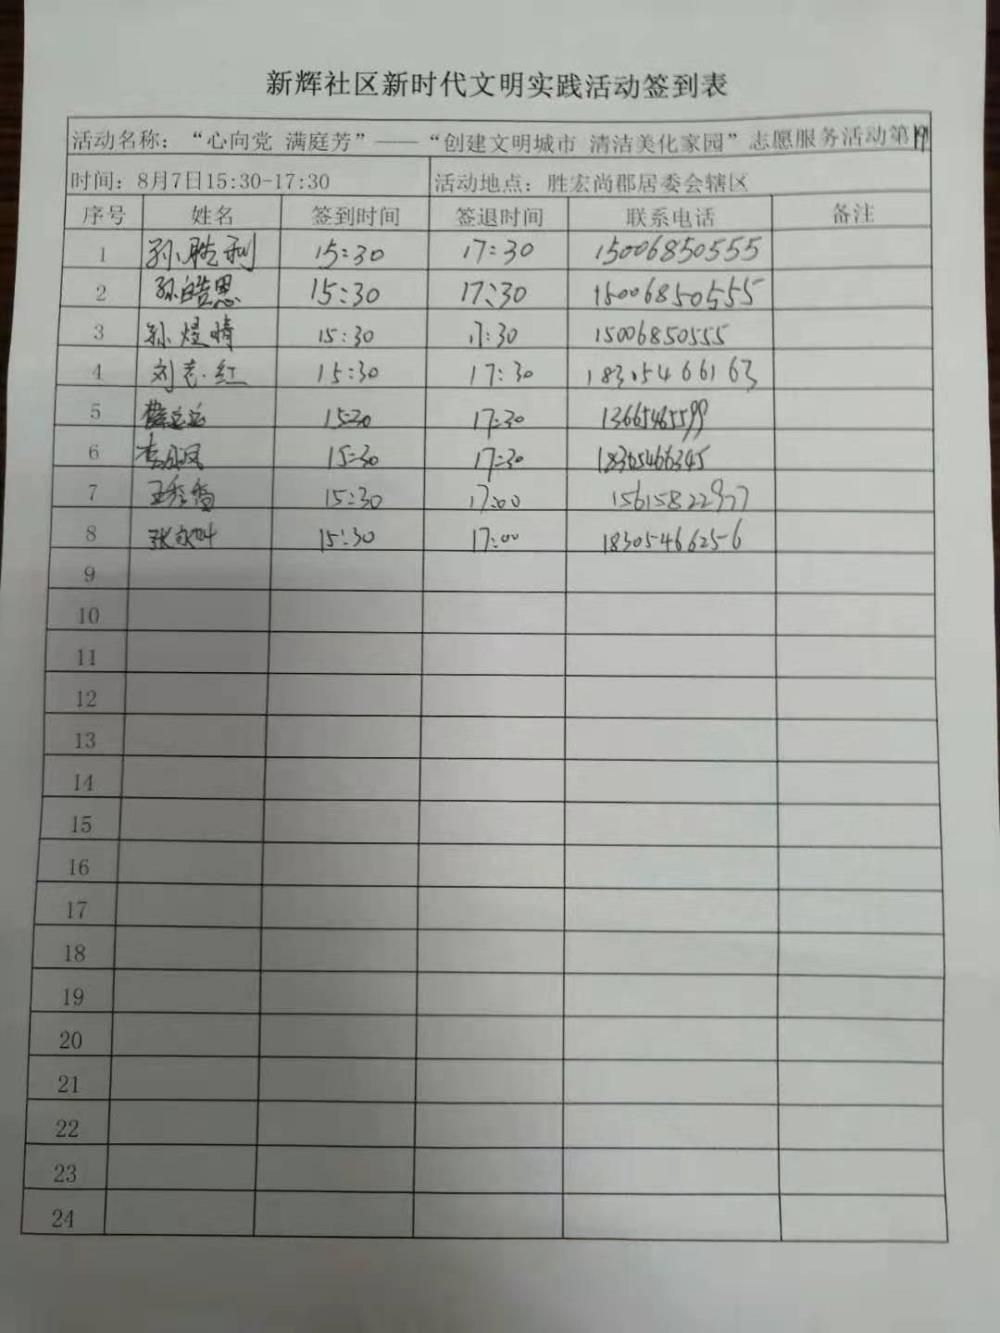 新辉社区新时代文明实践活动签到表
活动名称：“心向党 满庭芳”——“创建文明城市 清洁美化家园”志愿服务活动第19
时间：8月7日15:30-17:30 活动地点：胜宏尚郡居委会辖区
序号 姓名 签到时间 签退时间 联系电话 备注
1 孙胜利 15:30 17:30 15006850555
2 孙皓思 15:30 17:30 15006850555
3 孙煜晴 15:30 17:30 15006850555
4 刘志红 15:30 17:30 18305466163
5 15:30 17:30 13665465599
6 15:30 17:30 18305466345
7 王秀香 15:30 17:00 15615822977
8 15:30 17:00 18305466256
9
10
11
12
13
14
15
16
17
18
19
20
21
22
23
24